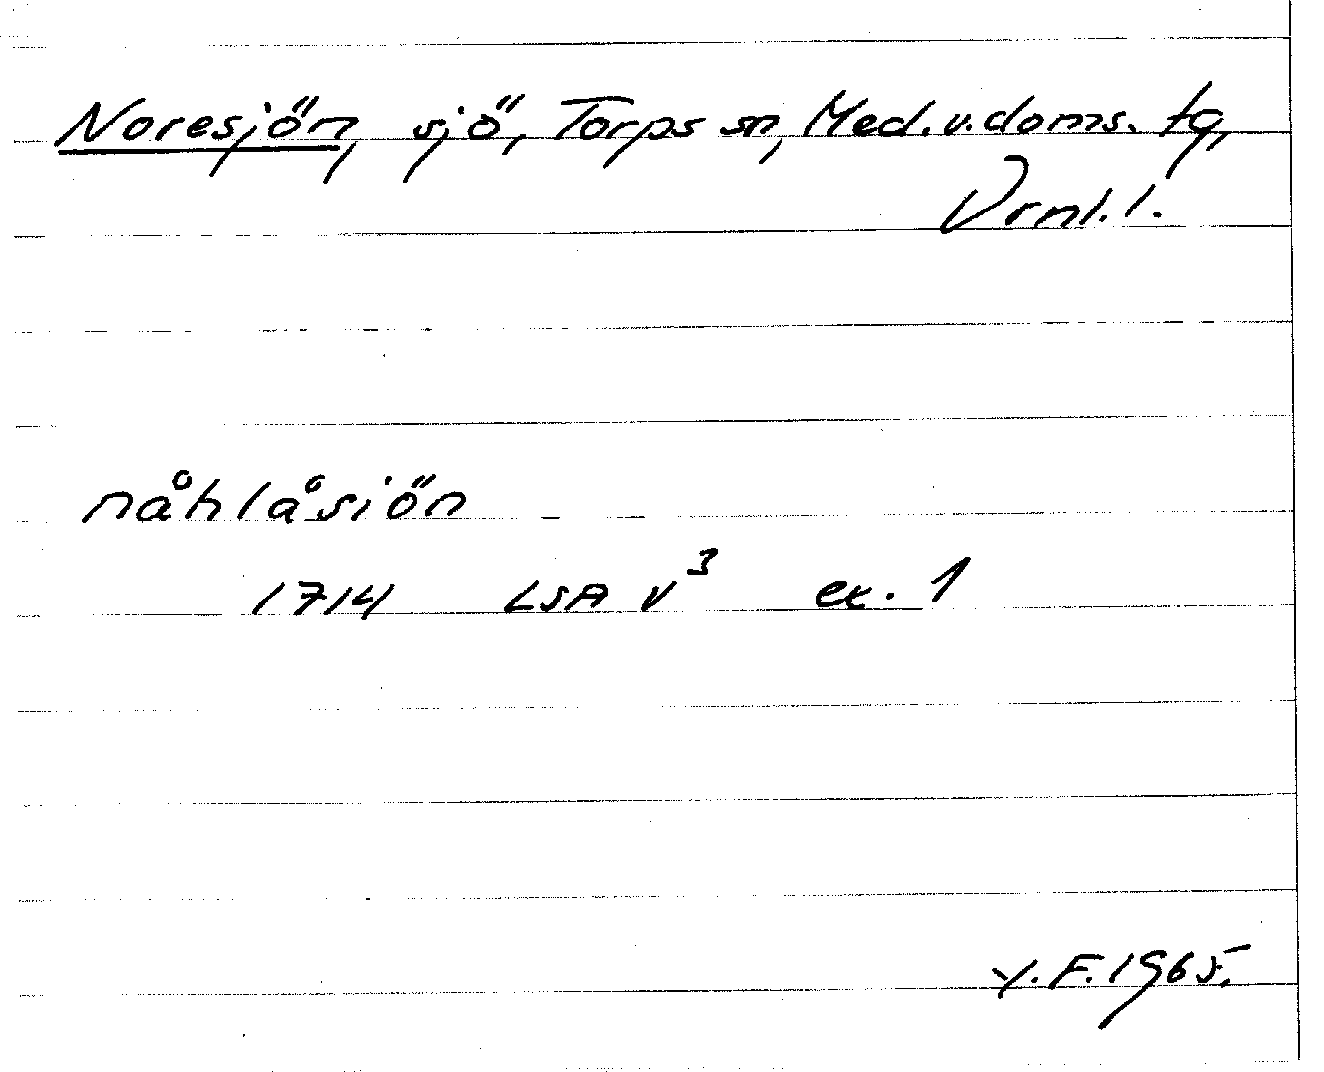 Noresjön, sjö, Torps sn, Med.v.doms. tg,
Vrnl.l.
nåhlåsiön
1714 LSA V³ ex. 1
Y.F.1965.